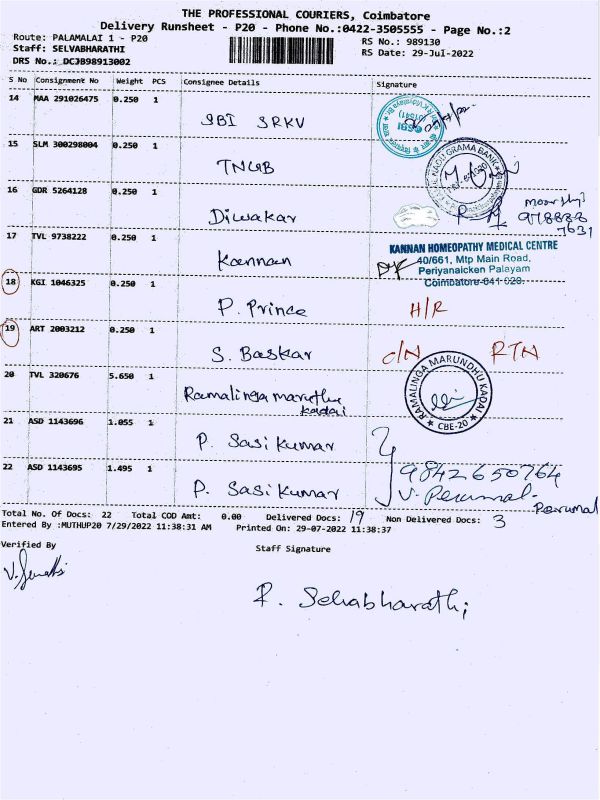 THE PROFESSIONAL COURIERS, Coimbatore
Delivery Runsheet - P20 - Phone No.:0422-3505555 - Page No.:2
Route: PALAMALAI 1 - P20
RS No.: 989130
Staff: SELVABHARATHI
RS Date: 29-Jul-2022
DRS No.: DCJB98913002
S No Consignment No Weight PCS Consignee Details Signature
14 MAA 291026475 0.250 1 SBI SRKV
15 SLM 300298004 0.250 1 TNGB
16 GDR 5264128 0.250 1 Diwakar
17 TVL 9738222 0.250 1 Kannan
KANNAN HOMEOPATHY MEDICAL CENTRE
40/661, Mtp Main Road,
Periyanaicken Palayam
Coimbatore-641 020.
18 KGI 1046325 0.250 1 P. Prince H/R
19 ART 2003212 0.250 1 S. Baskar C/N RTN
20 TVL 320676 5.650 1 Ramalinga maruthu
kadai
RAMALINGA MARUNDHU KADAI
CBE-20
21 ASD 1143696 1.055 1 P. Sasi Kumar
22 ASD 1143695 1.495 1 P. Sasi Kumar
9842650764
V. Perumal
Perumal
Total No. Of Docs: 22 Total COD Amt: 0.00 Delivered Docs: 19 Non Delivered Docs: 3
Entered By :MUTHUP20 7/29/2022 11:38:31 AM Printed On: 29-07-2022 11:38:37
Verified By
Staff Signature
P. Selvabharathi